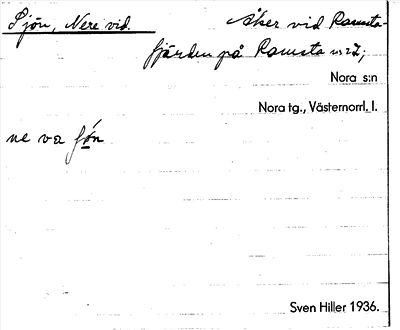 Sjön, Nere vid. Åker vid Ramsta-
fjärden på Ramsta nr 22;
Nora s:n
Nora tg., Västernorrl. l.
ne va fön
Sven Hiller 1936.